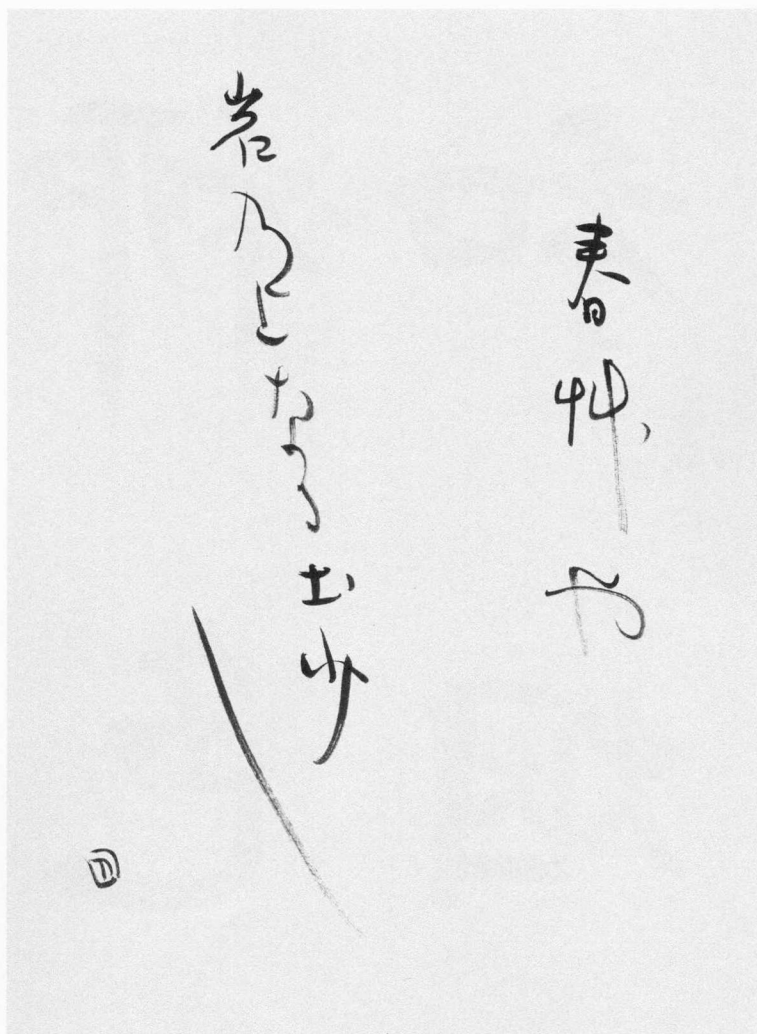 春艸や
岩乃上なる土少し